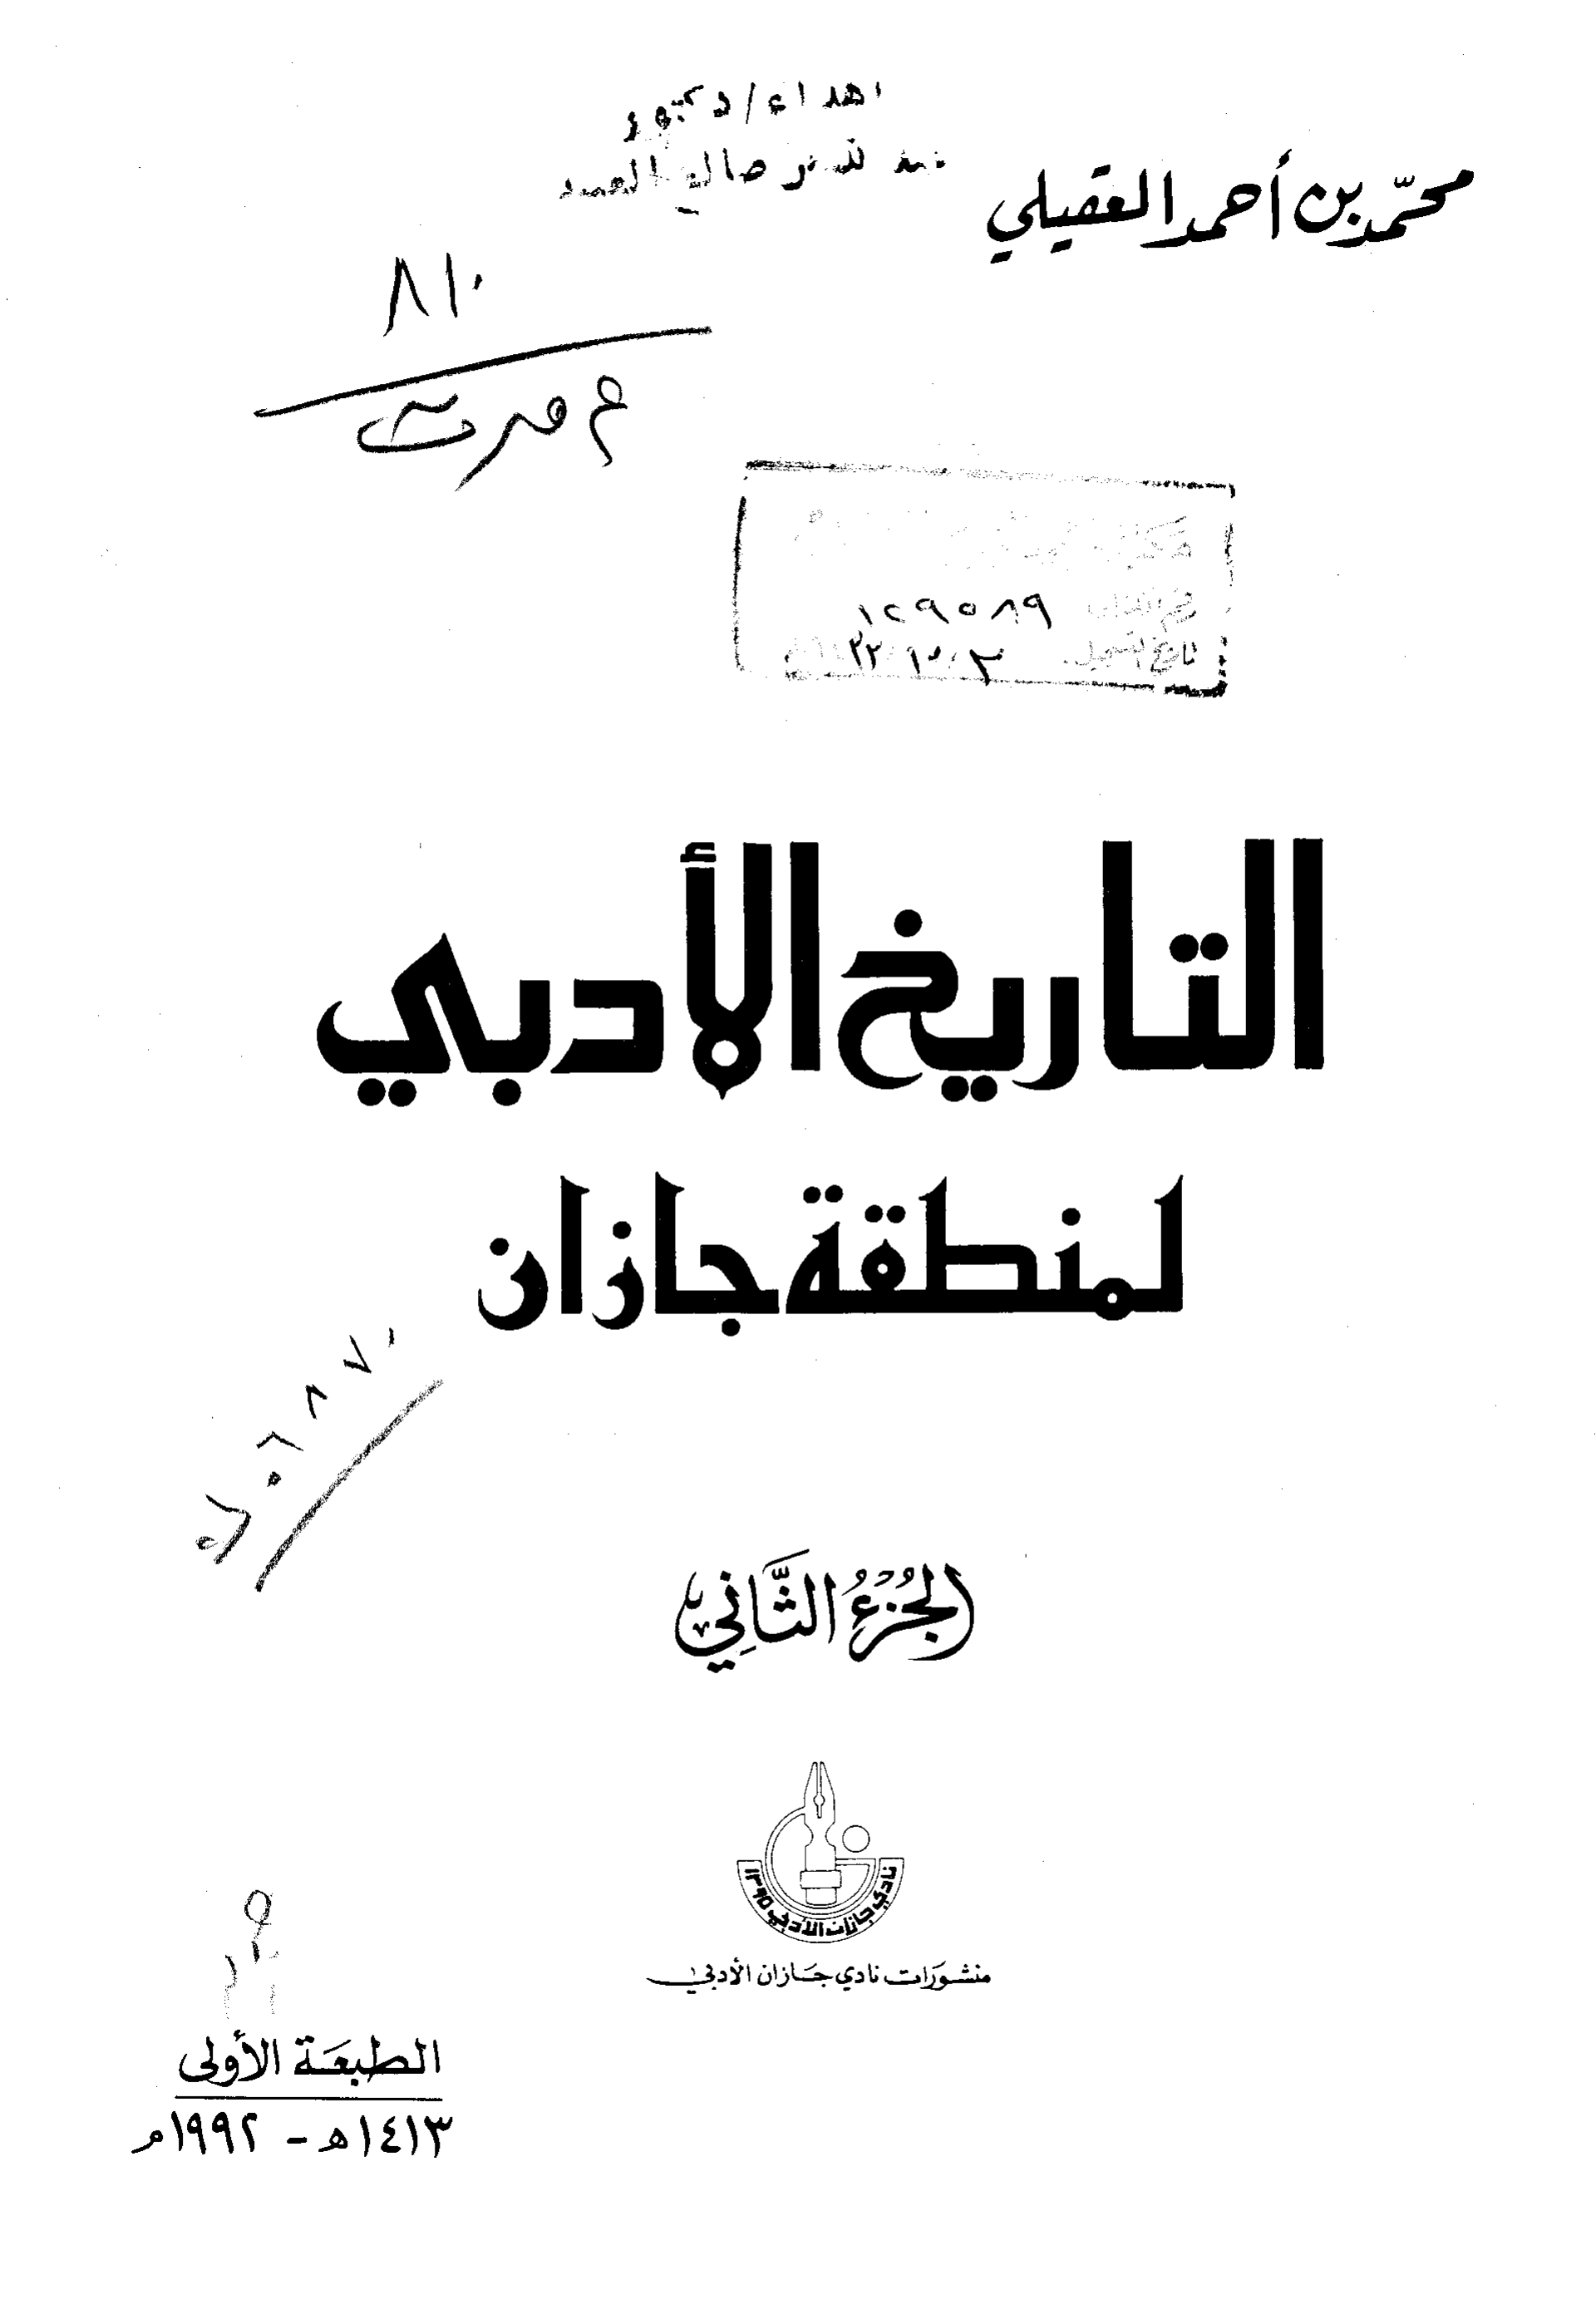 اهداء / دكتور
صالح
محمّد بن أحمد العقيلي
٨١٠
١٢٩٥٨٩
تاريخ التسجيل
التاريخ الأدبي
لمنطقة جازان
الجُزْءُ الثَّانِي
نادي جازان الأدبي ١٣٩٥
منشورات نادي جازان الأدبي
الطبعة الأولى
١٤١٣هـ - ١٩٩٢م